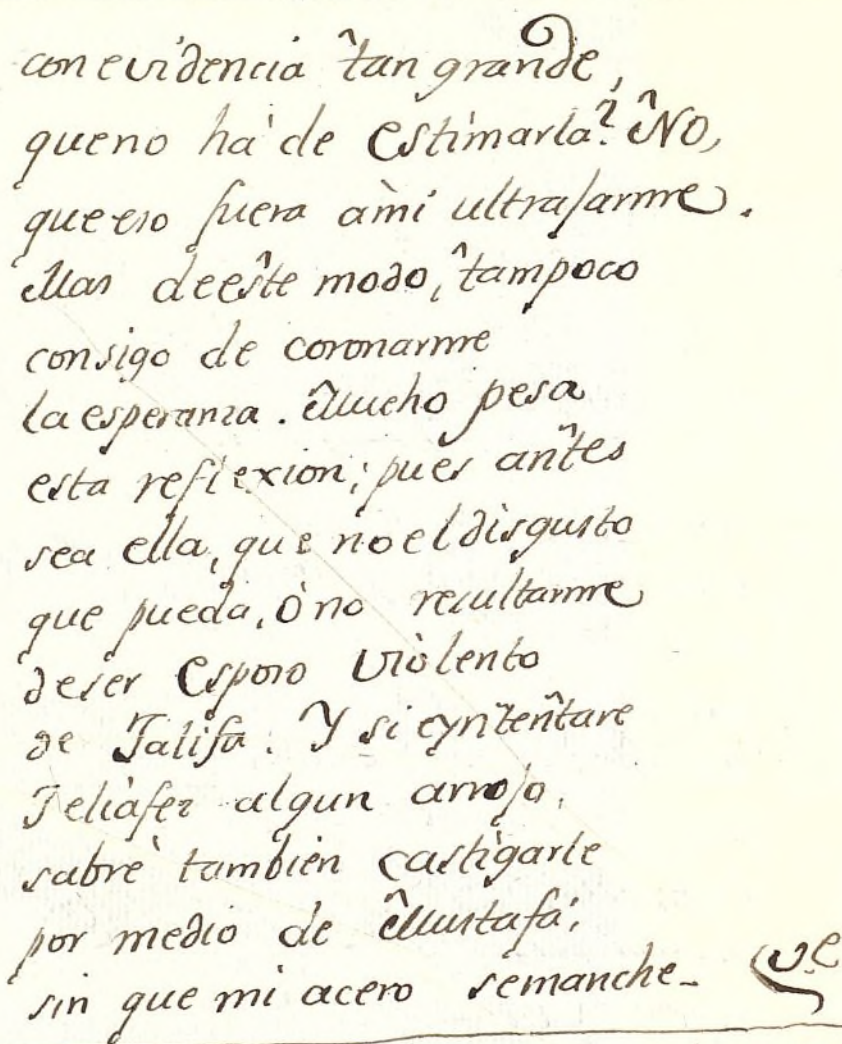 con evidencia tan grande,
que no ha de estimarla? No,
que eso fuera à mi ultrajarme.
Mas de este modo, tampoco
consigo de coronarme
la esperanza. Mucho pesa
esta reflexion; pues antes
sea ella, que no el disgusto
que pueda, ò no resultarme
de ser Esposo violento
de Jalifa. Y si eyntentare
Jeliafer algun arrojo,
sabrè tambien castigarle
por medio de Mustafà,
sin que mi acero se manche. Ve